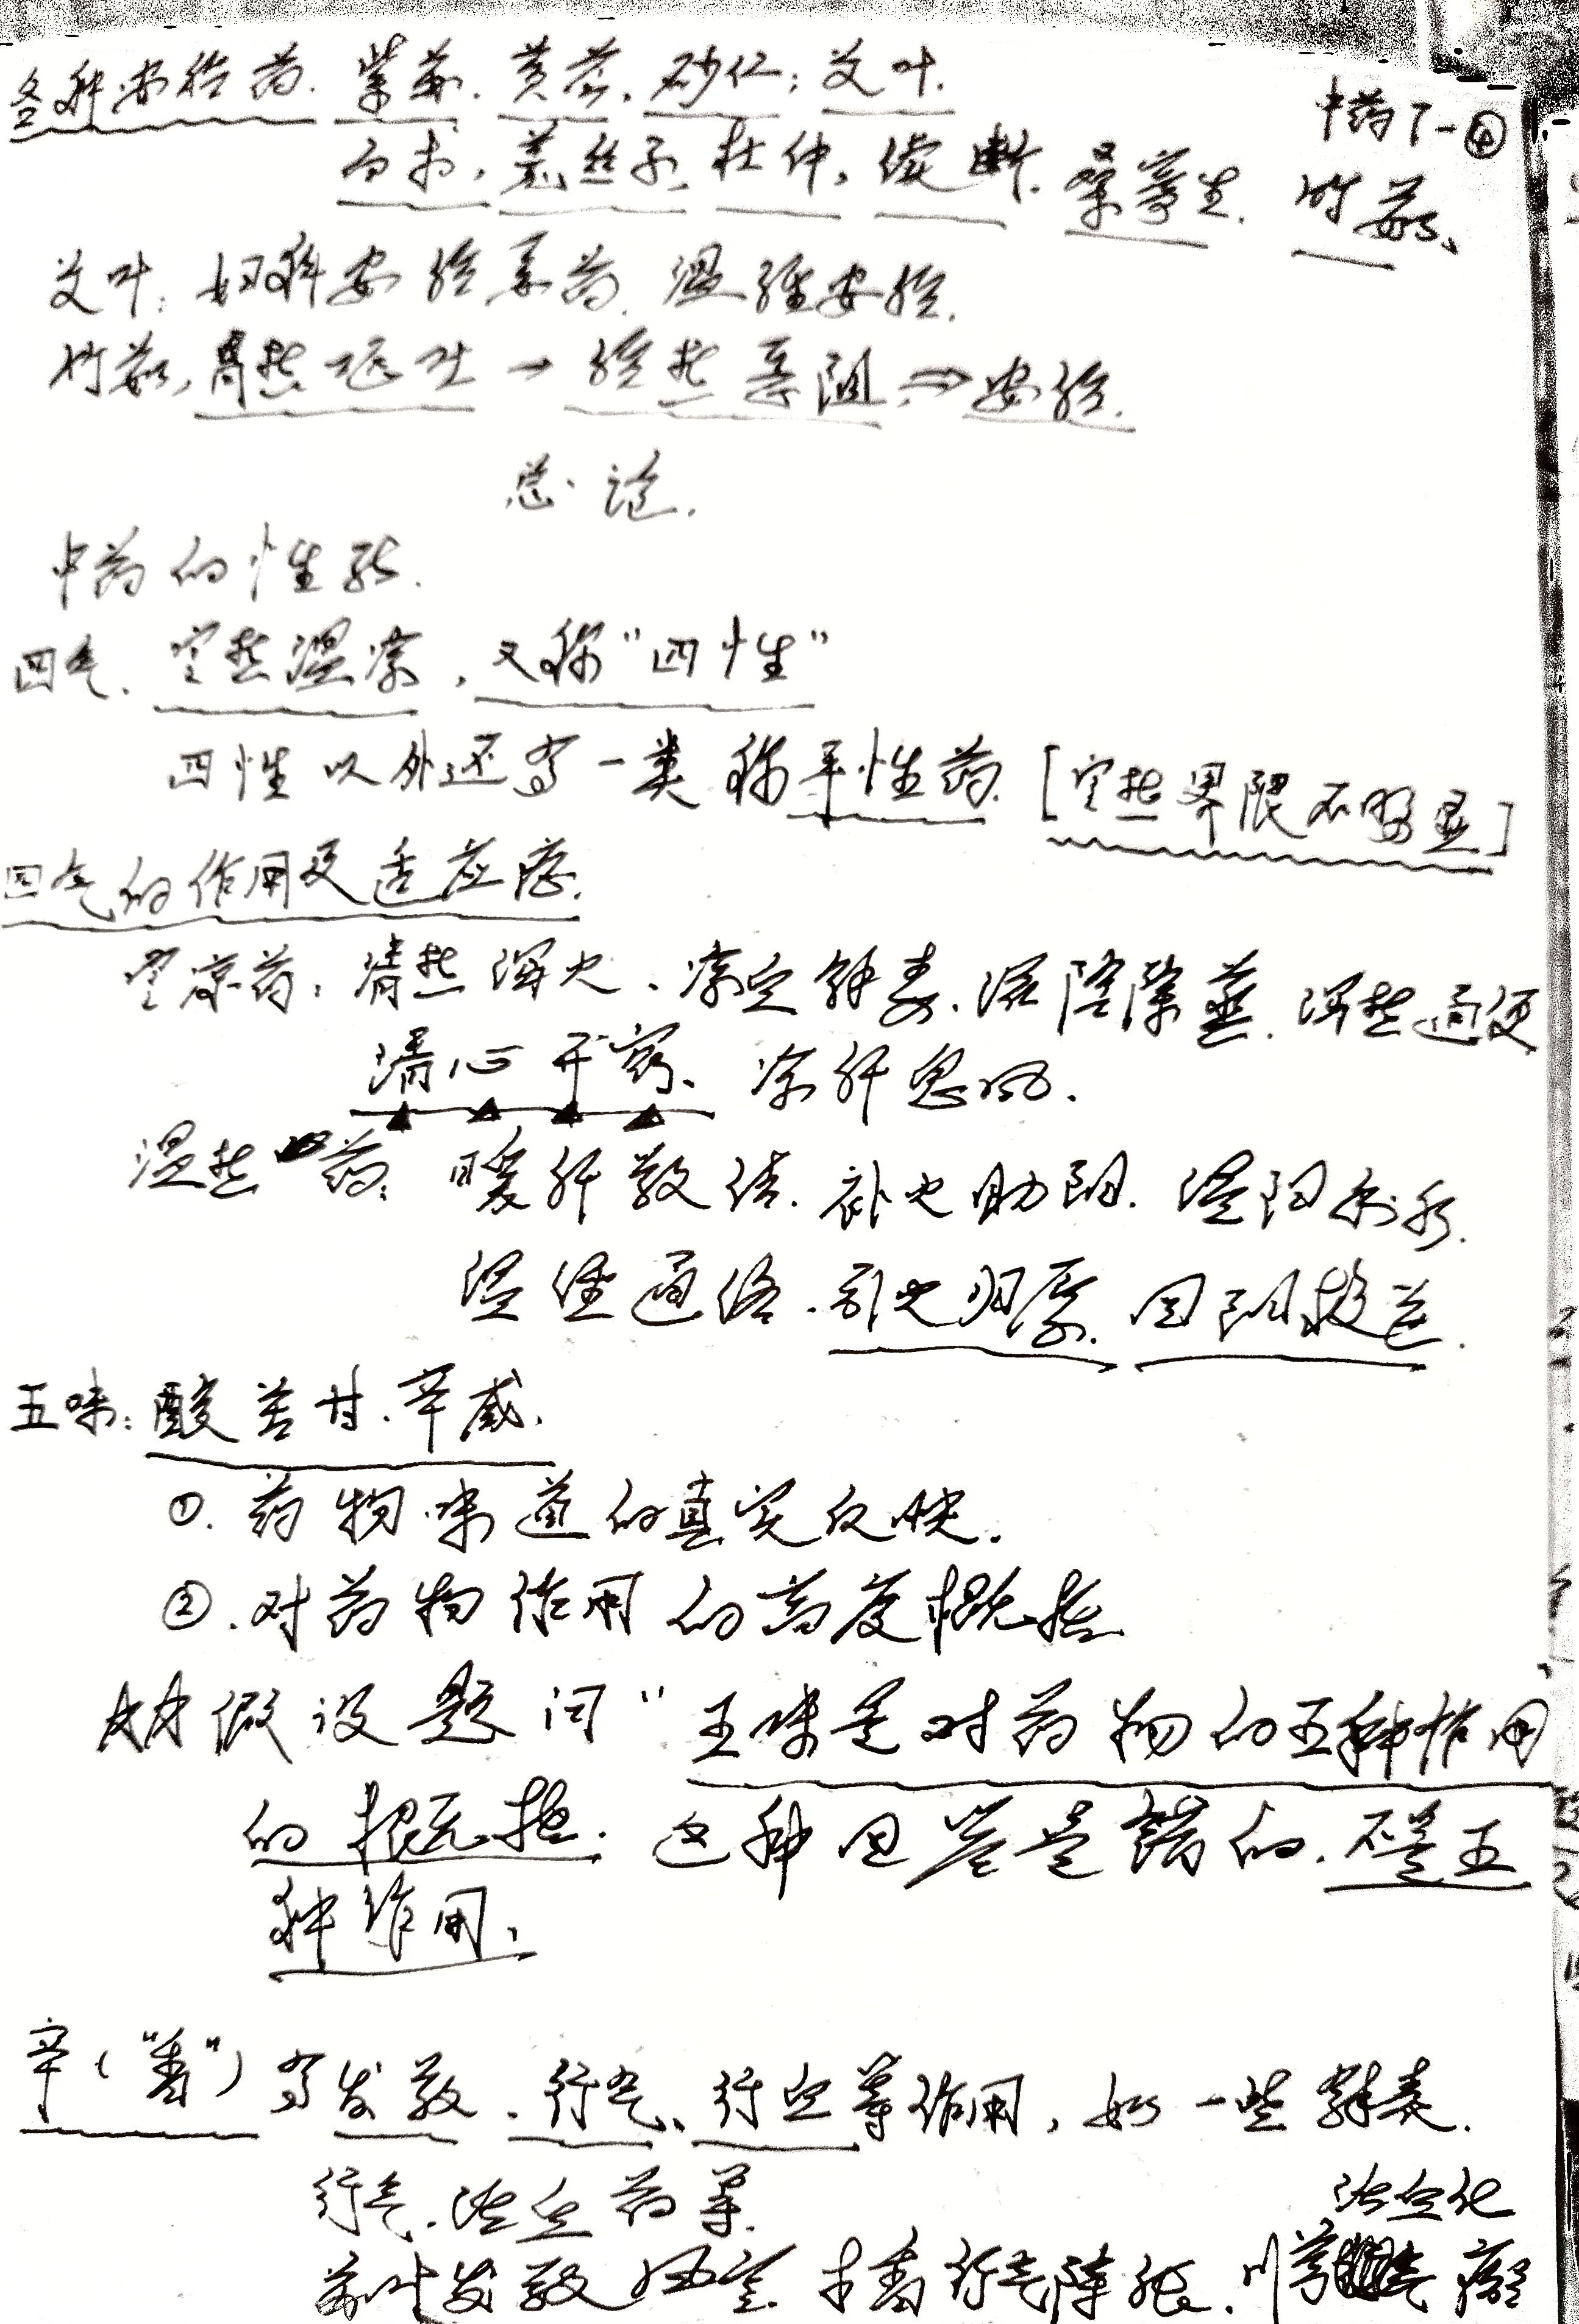 各种安胎药. 紫苏. 黄芩. 砂仁; 艾叶.
中药7-④
白术, 菟丝子, 杜仲, 续断. 桑寄生. 竹茹、
艾叶: 妇科安胎要药. 温经安胎.
竹茹, 胃热呕吐 → 胎热恶阻 ⇒ 安胎.
总论.
中药的性能.
四气. 寒热温凉, 又称"四性"
四性以外还有一类称平性药. [寒热界限不明显]
四气的作用及适应症.
寒凉药: 清热泻火、凉血解毒. 滋阴除蒸. 泻热通便
清心开窍、凉肝息风.
温热药: 暖肝散结. 补火助阳. 温阳利水.
温经通络. 引火归原. 回阳救逆.
五味: 酸苦甘.辛咸.
①. 药物味道的真实反映.
②. 对药物作用的高度概括
☆☆假设题问"五味是对药物的五种作用
的概括. 这种回答是错的. 不是五
种作用.
辛("香") 有发散. 行气、行血等作用, 如一些解表.
行气. 活血药等.
活血化
苏叶发散风寒. 木香行气除胀. 川芎 瘀